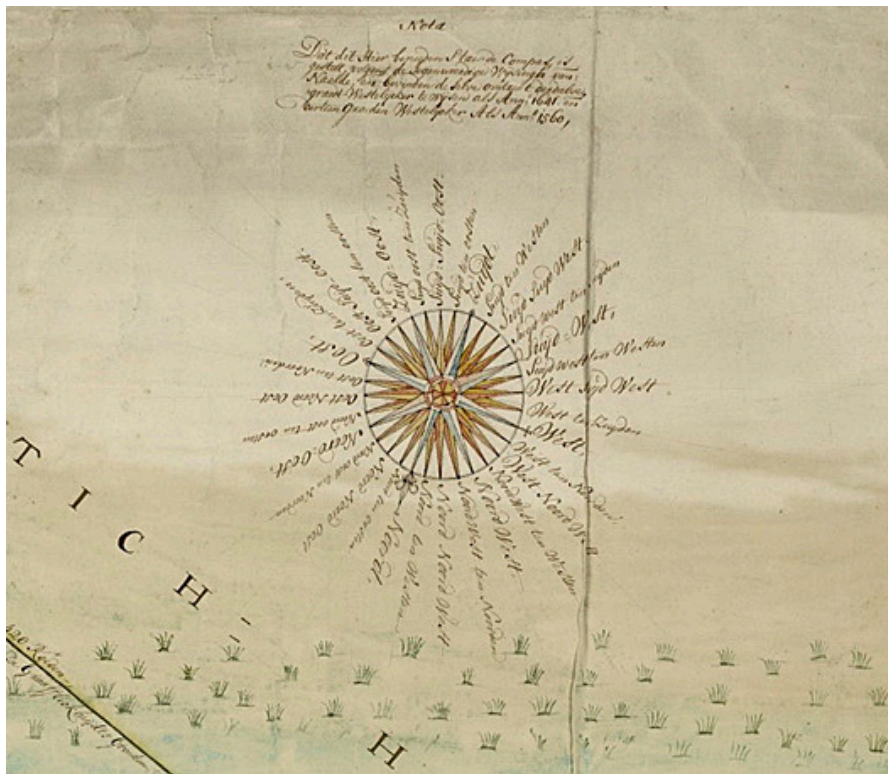 Nota
Dat dit Hier beneden Staende Compas, is
gestelt, volgens de Wysingh van
Naelde, en bevonden de selve
graat Westelyker te wysen als Anno 1641. en
Graeden Westelyker Als Anno 1560,
Zuijd-Zuijd-Oost
Zuijdt
Zuijd ten Westen
Zuijd Zuijd West
Zuijd West ten Zuyden
Zuijd-West,
Zuijd West ten Westen
West Zuijd West
West ten Zuyden
West,
West ten Noorden
West Noord West
Noord West ten Westen
Noord West
Noord West ten Noorden
Noord Noord West
Noord ten Westen
Noord
Noord ten oosten
Noord Noord Oost
Noord oost ten Noorden
Noord-Oost,
Noord oost ten oosten
Oost Noord Oost
Oost ten Noorden
Oost,
Oost ten Zuyden
Oost-Zuijd-Oost
Zuijd oost ten oosten
Zuijd-Oost
Zuijd oost ten Zuyden
Zuijd ten oosten
T I C H
H